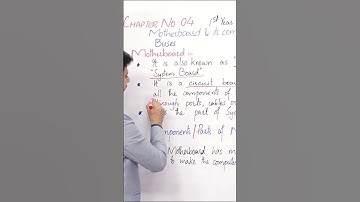 CHAPTER NO 04 1st Year
Motherboard & its com
Buses
Motherboard :-
It is also known as
"System Board"
It is a circuit boar
all the components of
through ports, cables or
is the part of Syst
Components/Parts of M
Motherboard has m
to make the compute